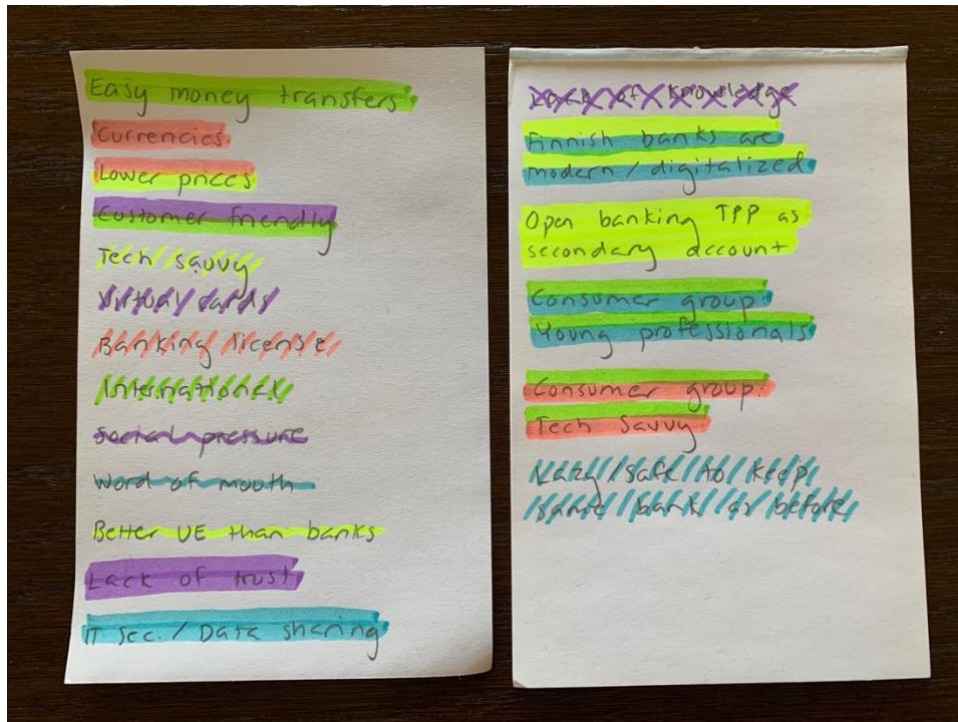 Easy money transfers
Currencies
Lower prices
Customer friendly
Tech savvy
Virtual cards
Banking license
International
Social pressure
Word of mouth
Better UE than banks
Lack of trust
IT sec. / Data sharing
Lack of knowledge
Finnish banks are
modern / digitalized
Open banking TPP as
secondary account
Consumer group
Young professionals
Consumer group:
Tech savvy
Lazy / safe to keep
same bank as before